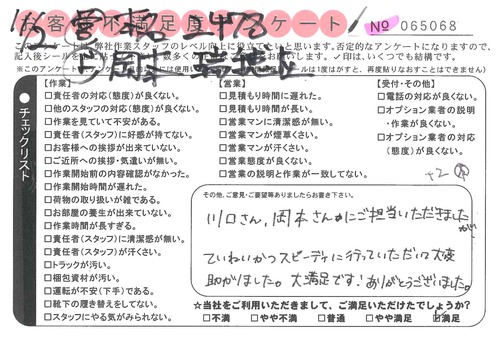 お客様不満足度アンケート
No 065068
このアンケートは、弊社作業スタッフのレベル向上に役立てたいと思います。否定的なアンケートになりますので、
※このアンケートは
作業
□責任者の対応(態度)が良くない。
□他のスタッフの対応(態度)が良くない。
□作業を見ていて不安がある。
□責任者(スタッフ)に好感が持てない。
□お客様への挨拶が出来ていない。
□ご近所への挨拶・気遣いが無い。
□作業開始前の内容確認がなかった。
□作業開始時間が遅れた。
□荷物の取り扱いが雑である。
□お部屋の養生が出来ていない。
□作業時間が長すぎる。
□責任者(スタッフ)に清潔感が無い。
□責任者(スタッフ)が汗くさい。
□トラックが汚い。
□梱包資材が汚い。
□運転が不安(下手)である。
□靴下の履き替えをしてない。
□スタッフにやる気がみられない。
【営業】
□見積もり時間に遅れた。
□見積もり時間が長い。
□営業マンに清潔感が無い。
□営業マンが煙草くさい。
□営業マンが汗くさい。
□営業態度が良くない。
□営業の説明と作業が一致してない。
【受付・その他】
□電話の対応が良くない。
□オプション業者の説明
・作業が良くない。
□オプション業者の対応
(態度)が良くない。
チェックリスト
その他、ご意見・ご要望等ありましたらお書き下さい。
川口さん、岡本さんにご担当いただきましたが、
ていねいかつスピーディに行っていただいて大変
助かりました。大満足です!ありがとうございました。
★当社をご利用いただきまして、ご満足いただけたでしょうか?
□不満 □やや不満 □普通 □やや満足 ☑満足